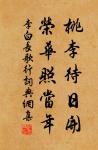 桃李待日開
榮華照當年
李白長歌行詞典網集